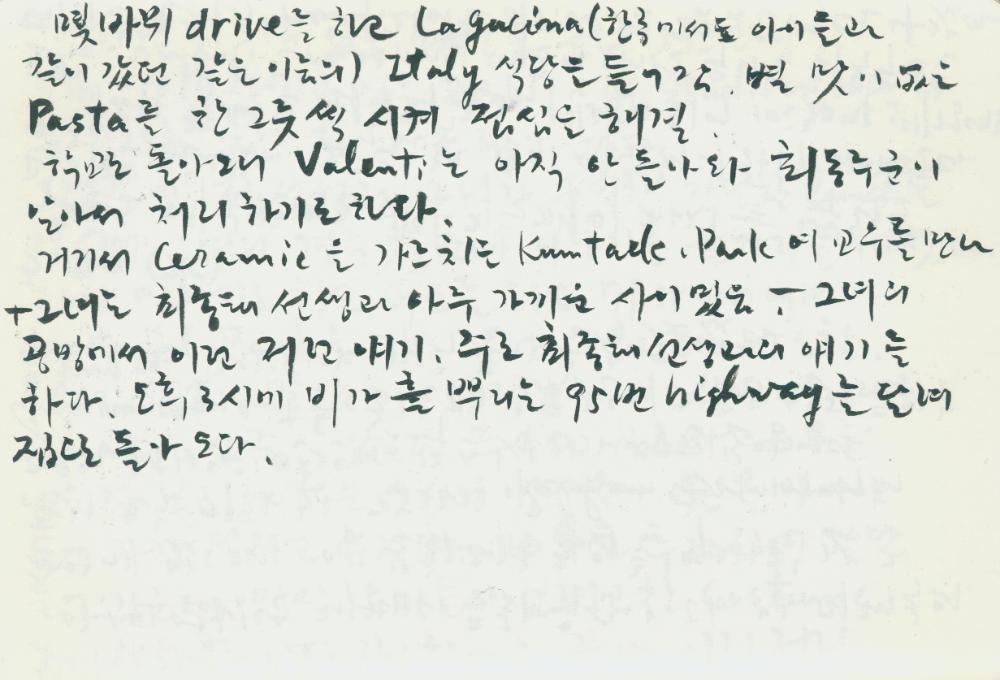 몇바퀴 drive를 하고 Lagucina(한국에서도 아이들과
같이 갔던 같은 이름의) Italy 식당을 들어가 별 맛이 없는
Pasta를 한 그릇씩 시켜 점심을 해결.
학교로 돌아오니 Valenti는 아직 안 돌아와 최동주군이
알아서 처리하기로 하다.
거기서 Ceramic을 가르치는 Kumtack. Park 여교수를 만나
그녀는 최중태 선생과 아주 가까운 사이였음 - 그녀의
공방에서 이런 저런 얘기. 주로 최중태 선생과의 얘기를
하다 오후 3시에 비가 흩뿌리는 95번 highway를 달려
집으로 돌아오다.